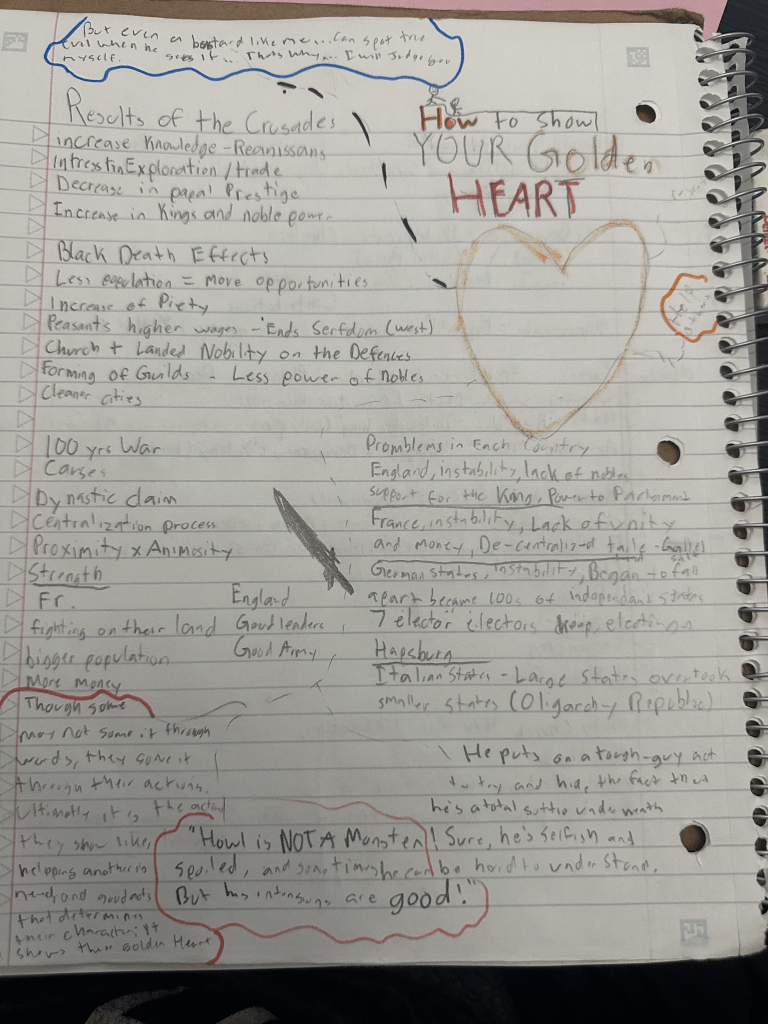 But even a bastard like me... can spot true
evil when he sees it... Thats why... I will Judge you
myself.
How to Show
YOUR Golden
HEART
Results of the Crusades
increase Knowledge - Reanissans
Intresst in Exploration / trade
Decrease in papal Prestige
Increase in Kings and noble power
Black Death Effects
Less population = More opportunities
Increase of Piety
Peasants higher wages - Ends Serfdom (west)
Church + Landed Nobility on the Defences
Forming of Guilds - Less power of nobles
Cleaner cities
100 yrs War
Causes
Dynastic claim
Centralization process
Proximity x Animosity
Strength
Fr. England
fighting on their land Good leaders
bigger population Good Army
More money
Promblems in Each Country
England, instability, lack of nobles
support for the King, Power to Parliament
France, instability, Lack of unity
and money, De-centralized taile -
German States, instability, Began to fall
apart became 100s of independant states
7 elector electors keep electing
Hapsburg
Italian States - Large States overtook
smaller states (Oligarchy Republic)
Though some
may not some it through
words, they it
through their actions.
Ultimatly it is the action
they show like,
helping another in
need, and good acts
that determine
their character; it
shows their Golden Heart
He puts on a tough-guy act
to try and hide the fact that
he's a total softie underneath
"Howl is NOT A Monster! Sure, he's selfish and
spoiled, and sometimes he can be hard to understand.
But his intensions are good!"